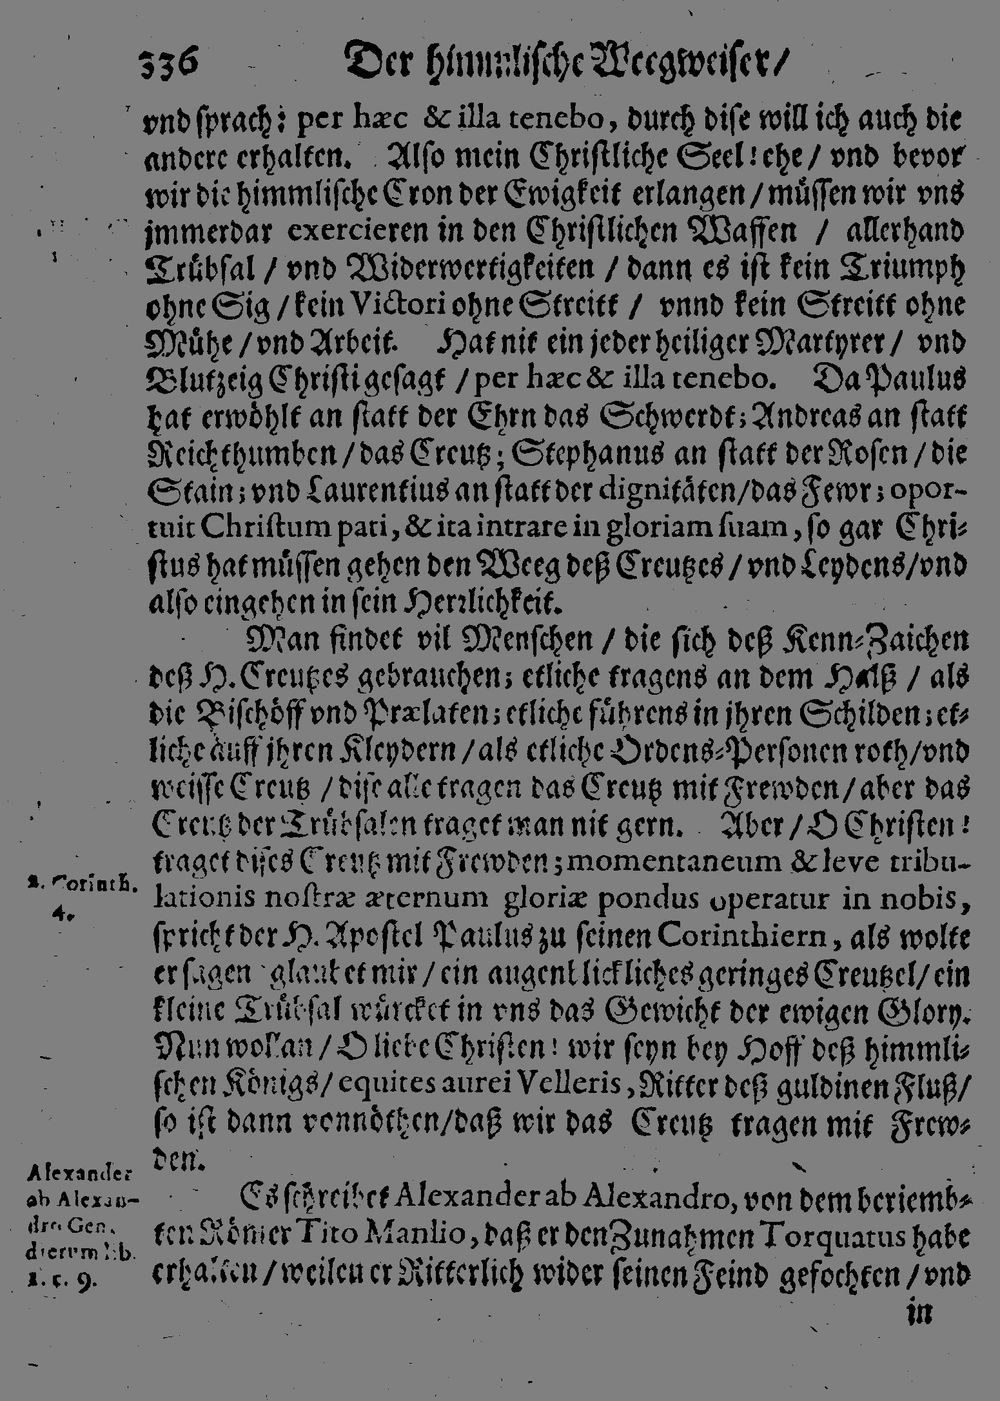 336 Der himmlische Weegweiser/
vnd sprach: per hæc & illa tenebo, durch dise will ich auch die
andere erhalten. Also mein Christliche Seel! ehe / vnd bevor
wir die himmlische Cron der Ewigkeit erlangen / müssen wir vns
jmmerdar exercieren in den Christlichen Waffen / allerhand
Trübsal / vnd Widerwertigkeiten / dann es ist kein Triumph
ohne Sig / kein Victori ohne Streitt / vnnd kein Streitt ohne
Mühe / vnd Arbeit. Hat nit ein jeder heiliger Martyrer / vnd
Blutzeig Christi gesagt / per hæc & illa tenebo. Da Paulus
hat erwöhlt an statt der Ehrn das Schwerdt; Andreas an statt
Reichthumben / das Creutz; Stephanus an statt der Rosen / die
Stain; vnd Laurentius an statt der dignitäten/das Fewr; opor-
tuit Christum pati, & ita intrare in gloriam suam, so gar Chri-
stus hat müssen gehen den Weeg deß Creutzes / vnd Leydens/vnd
also eingehen in sein Herrlichkeit.
Man findet vil Menschen / die sich deß Kenn-Zaichen
deß H. Creutzes gebrauchen; etliche tragens an dem Halß / als
die Bischöff vnd Prælaten; etliche führens in jhren Schilden; et-
liche auff jhren Kleydern / als etliche Ordens-Personen roth/vnd
weisse Creutz / dise alle tragen das Creutz mit Frewden / aber das
Creutz der Trübsalen traget man nit gern. Aber / O Christen!
traget dises Creutz mit Frewden; momentaneum & leve tribu-
2. Corinth.
4.
lationis nostræ æternum gloriæ pondus operatur in nobis,
spricht der H. Apostel Paulus zu seinen Corinthiern, als wolte
er sagen glaubet mir / ein augenblickliches geringes Creutzel/ ein
kleine Trübsal würcket in vns das Gewicht der ewigen Glory.
Nun wollan / O liebe Christen! wir seyn bey Hoff deß himmli-
schen Königs/ equites aurei Velleris, Ritter deß guldinen Fluß/
so ist dann vonnöthen/daß wir das Creutz tragen mit Frew-
den.
Alexander
ab Alexan-
dro Gen.
dierum lib.
1. c. 9.
Es schreibet Alexander ab Alexandro, von dem beriemb-
ten Römer Tito Manlio, daß er den Zunahmen Torquatus habe
erhalten / weilen er Ritterlich wider seinen Feind gefochten / vnd
in